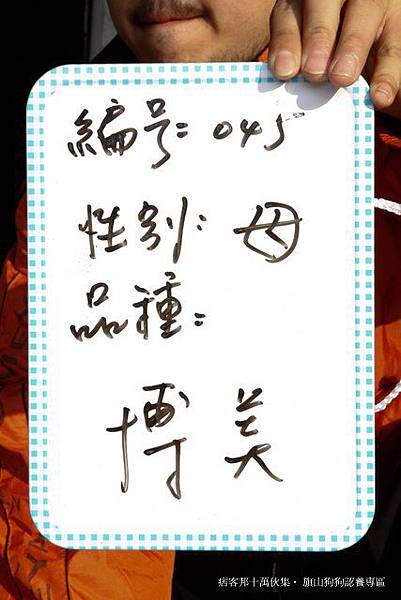 編号：045
性别：母
品種：
博美
痞客邦十萬伙集・旗山狗狗認養專區